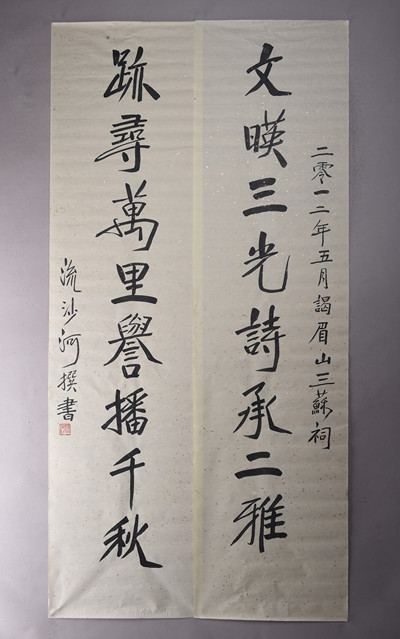 二零一二年五月謁眉山三蘇祠
文暎三光詩承二雅
跡尋萬里譽播千秋
流沙河撰書